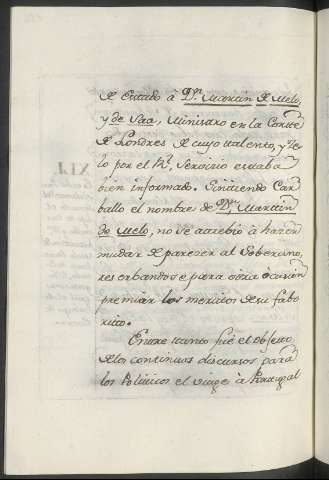 de Estado à Dn. Martin de Melo,
y de Saa, Ministro en la Corte
de Londres de cuyo talento, y ze
lo por el Rl. Servicio estaba
bien informado. Sintiendo Car
ballo el nombre de Dn. Martin
de Melo, no se atrebio à hacer
mudar de parecer al Soberano,
reserbandose para otra ocasion
premiar los meritos de su fabo
rito.
Entre tanto fué el objeto
de los continuos discursos para
los Politicos el viage à Portugal